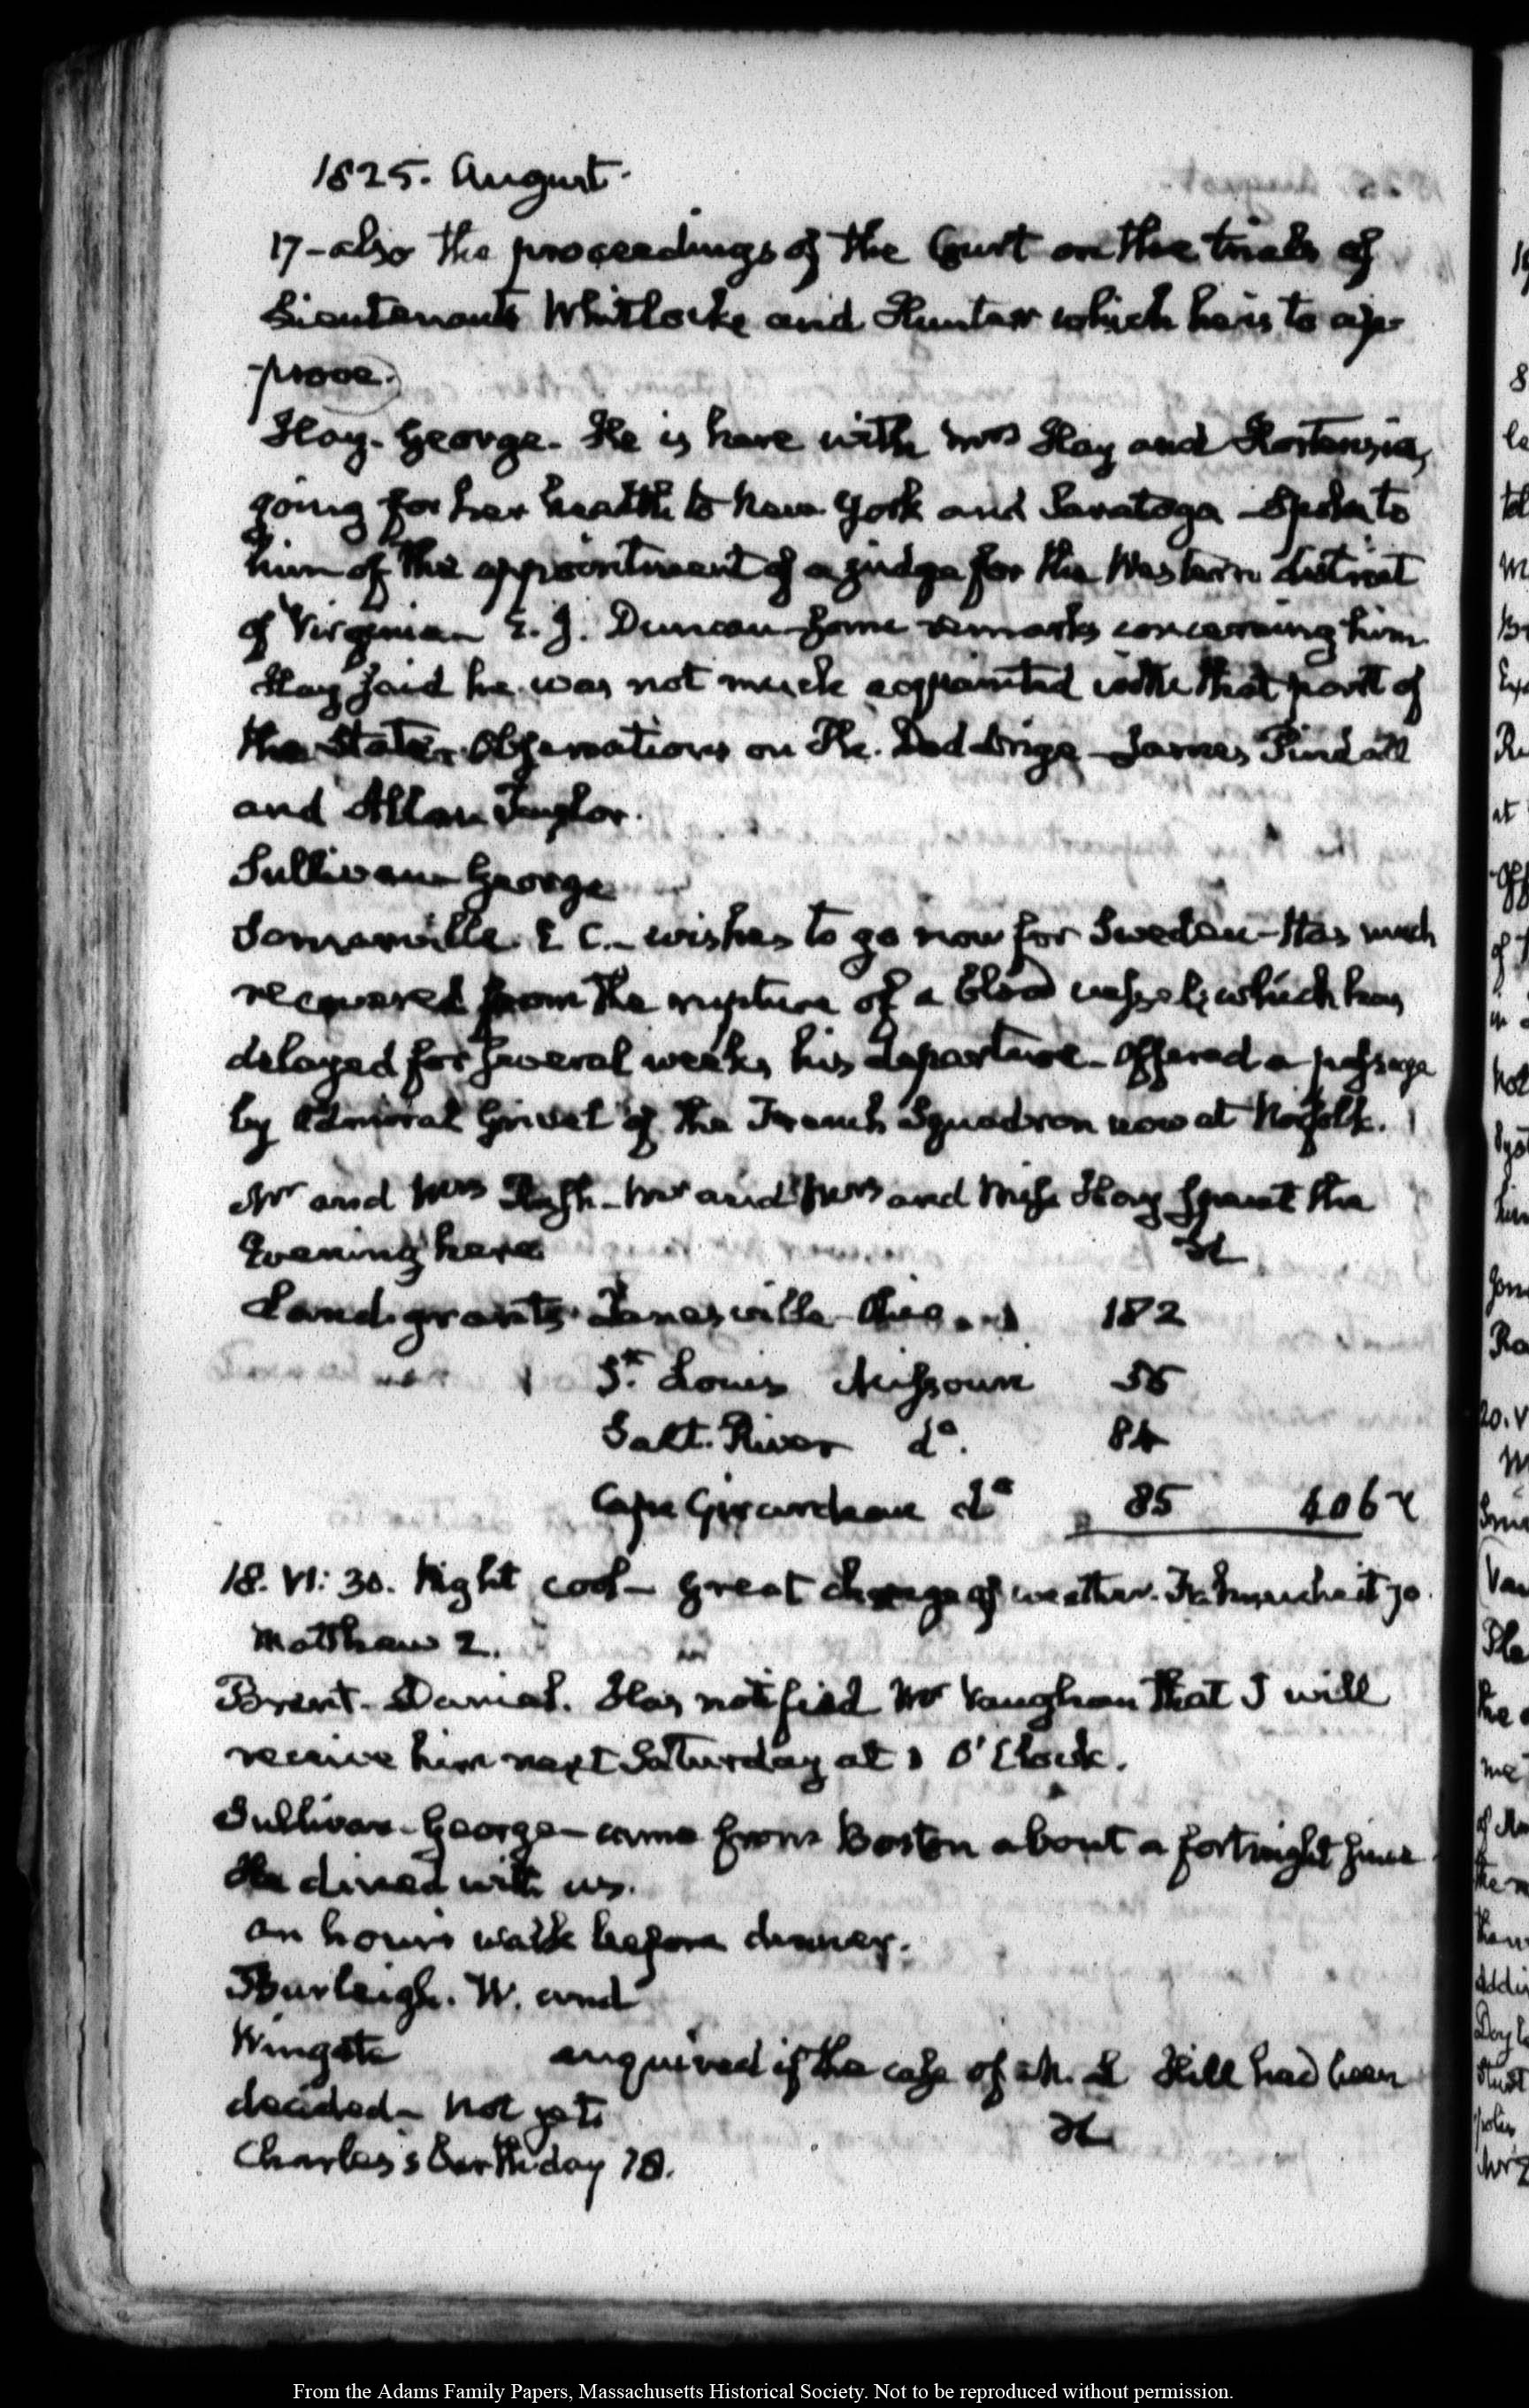 1825. August.
17 - also the proceedings of the Court on the trials of
Lieutenants Whitlocke and Hunter which he is to ap-
prove.
Hay. George. He is here with Mrs Hay and Hortensia,
going for her health to New York and Saratoga - Spoke to
him of the appointment of a judge for the Western district
of Virginia - E. J. Duncan some remarks concerning him
Hay said he was not much acquainted with that part of
the State. Observations on Ph. Doddridge - James Pindall
and Allan Taylor.
Sullivan George
Somerville E C. - wishes to go now for Sweden - Has much
recovered from the rupture of a blood vessel, which has
delayed for several weeks his departure - Offered a passage
by Admiral Grivel of the French Squadron now at Norfolk.
Mr and Mrs Rush - Mr and Mrs and Miss Hay spent the
Evening here
Land grants. Zanesville Ohio 182
St. Louis Missouri 55
Salt. River do. 84
Cape Girardeau do 85 406
18. VI: 30. Night cool - great change of weather. Fahrenheit 70
Matthew 2.
Brent. Daniel. Has notified Mr Vaughan that I will
receive him next Saturday at 1 O'Clock.
Sullivan - George - came from Boston about a fortnight since
He dined with us.
an hour's walk before dinner.
Burleigh. W. and
Wingate enquired if the case of M. L Hill had been
decided - Not yet.
Charles's birthday 18.
From the Adams Family Papers, Massachusetts Historical Society. Not to be reproduced without permission.